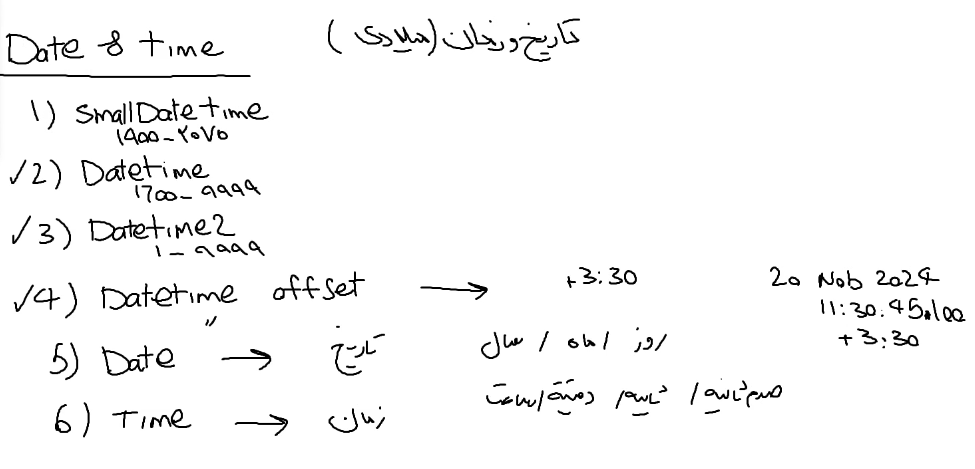 Date & time تاریخ و زمان (میلادی)
1) SmallDatetime
1900-2070
✓2) Datetime
1700-9999
✓3) Datetime2
1-9999
✓4) Datetime offset → +3:30 20 Nob 2024
" 11:30:45.100
+3:30
5) Date → تاریخ روز / ماه / سال
6) Time → زمان صدم ثانیه / ثانیه / دقیقه / ساعت